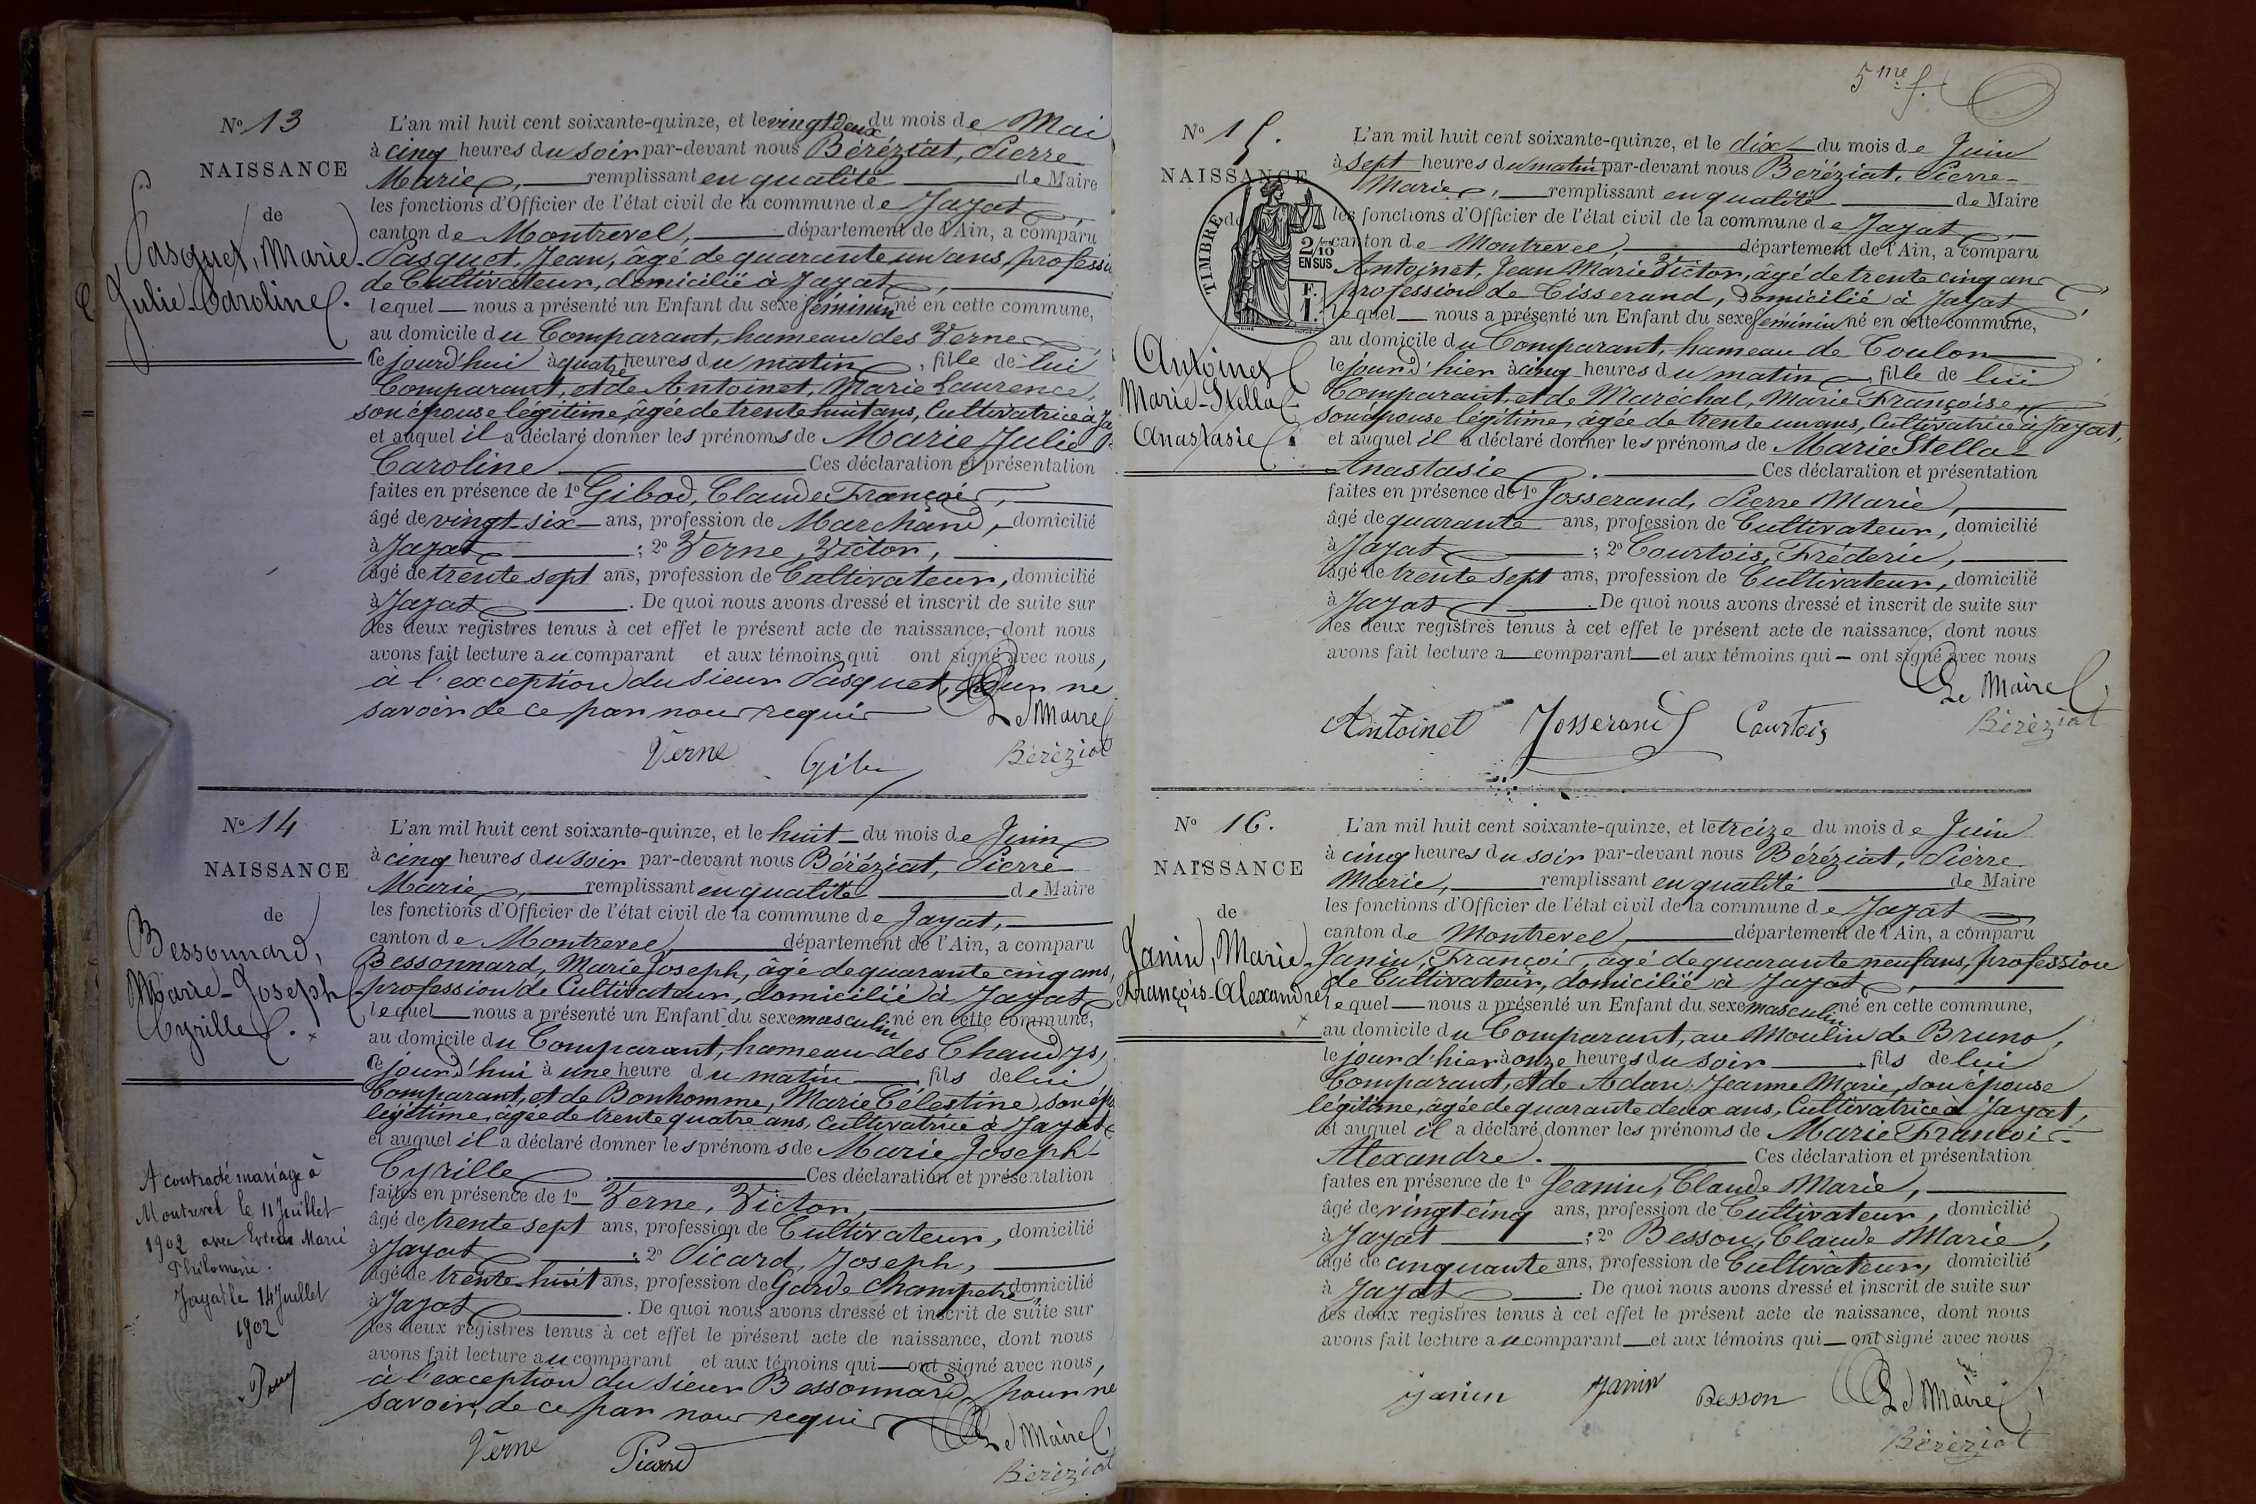 N° 13
NAISSANCE
de
Pasquet, Marie
Julie-Caroline.
L'an mil huit cent soixante-quinze, et le vingt deux du mois de Mai
à cinq heures du soir par-devant nous Béréziat, Pierre
Marie, remplissant en qualité de Maire
les fonctions d'Officier de l'état civil de la commune de Jayat
canton de Montrevel, département de l'Ain, a comparu
Pasquet, Jean, âgé de quarante un ans, professi
de Cultivateur, domicilié à Jayat,
lequel nous a présenté un Enfant du sexe féminin né en cette commune,
au domicile du Comparant, hameau des Verne
Ce jourd'hui à quatre heures du matin, fille de lui
Comparant, et de Antoinet, Marie Laurence,
son épouse légitime, âgée de trente huit ans, Cultivatrice à Ja
et auquel il a déclaré donner les prénoms de Marie Julie
Caroline Ces déclaration et présentation
faites en présence de 1° Gibod, Claude François,
âgé de vingt-six ans, profession de Marchand, domicilié
à Jayat ; 2° Verne, Victor,
âgé de trente sept ans, profession de Cultivateur, domicilié
à Jayat . De quoi nous avons dressé et inscrit de suite sur
les deux registres tenus à cet effet le présent acte de naissance, dont nous
avons fait lecture au comparant et aux témoins qui ont signé avec nous,
à l'exception du sieur Pasquet, pour ne
savoir de ce par nous requis
Le Maire
Verne Gibo Béréziat
N° 14
NAISSANCE
de
Bessonnard,
Marie-Joseph
Cyrille.
A contracté mariage à
Montrevel le 11 Juillet
1902 avec Marie
Philomène.
Jayat le 14 Juillet
1902
L'an mil huit cent soixante-quinze, et le huit du mois de Juin
à cinq heures du soir par-devant nous Béréziat, Pierre
Marie, remplissant en qualité de Maire
les fonctions d'Officier de l'état civil de la commune de Jayat,
canton de Montrevel, département de l'Ain, a comparu
Bessonnard, Marie Joseph, âgé de quarante cinq ans,
profession de Cultivateur, domicilié à Jayat
lequel nous a présenté un Enfant du sexe masculin né en cette commune,
au domicile du Comparant, hameau des Chandys,
Ce jourd'hui à une heure du matin, fils de lui
Comparant, et de Bonhomme, Marie Célestine, son ép
légitime, âgée de trente quatre ans, Cultivatrice à Jayat
et auquel il a déclaré donner les prénoms de Marie Joseph-
Cyrille Ces déclaration et présentation
faites en présence de 1° Verne, Victor,
âgé de trente sept ans, profession de Cultivateur, domicilié
à Jayat ; 2° Picard, Joseph,
âgé de trente-huit ans, profession de Garde Champetre domicilié
à Jayat . De quoi nous avons dressé et inscrit de suite sur
les deux registres tenus à cet effet le présent acte de naissance, dont nous
avons fait lecture au comparant et aux témoins qui ont signé avec nous,
à l'exception du sieur Bessonnard, pour ne
savoir, de ce par nous requis
Le Maire
Verne Picard Béréziat
5me f.
N° 15.
NAISSANCE
de
TIMBRE
2/10
EN SUS
F.
1.
Antoinet
Marie-Stella-
Anastasie.
L'an mil huit cent soixante-quinze, et le dix du mois de Juin
à sept heures du matin par-devant nous Béréziat, Pierre-
Marie, remplissant en qualité de Maire
les fonctions d'Officier de l'état civil de la commune de Jayat
canton de Montrevel, département de l'Ain, a comparu
Antoinet, Jean Marie Victor, âgé de trente cinq ans
profession de Tisserand, domicilié à Jayat,
lequel nous a présenté un Enfant du sexe féminin né en cette commune,
au domicile du Comparant, hameau de Coulon
le jour d'hier à cinq heures du matin, fille de lui
Comparant, et de Maréchal, Marie Françoise,
son épouse légitime, âgée de trente un ans, Cultivatrice à Jayat,
et auquel il a déclaré donner les prénoms de Marie Stella-
Anastasie. Ces déclaration et présentation
faites en présence de 1° Josserand, Pierre Marie,
âgé de quarante ans, profession de Cultivateur, domicilié
à Jayat ; 2° Courtois, Fréderic,
âgé de trente sept ans, profession de Cultivateur, domicilié
à Jayat . De quoi nous avons dressé et inscrit de suite sur
les deux registres tenus à cet effet le présent acte de naissance, dont nous
avons fait lecture a comparant et aux témoins qui ont signé avec nous
Le Maire
Antoinet Josserand Courtois Béréziat
N° 16.
NAISSANCE
de
Janin, Marie-
François-Alexandre
L'an mil huit cent soixante-quinze, et le treize du mois de Juin
à cinq heures du soir par-devant nous Béréziat, Pierre
Marie, remplissant en qualité de Maire
les fonctions d'Officier de l'état civil de la commune de Jayat
canton de Montrevel, département de l'Ain, a comparu
Janin, François, âgé de quarante neuf ans, profession
de Cultivateur, domicilié à Jayat,
lequel nous a présenté un Enfant du sexe masculin né en cette commune,
au domicile du Comparant, au Moulin de Bruno,
le jour d'hier à onze heures du soir, fils de lui
Comparant, et de Adam, Jeanne Marie, son épouse
légitime, âgée de quarante deux ans, Cultivatrice à Jayat,
et auquel il a déclaré donner les prénoms de Marie François-
Alexandre. Ces déclaration et présentation
faites en présence de 1° Jeanin, Claude Marie,
âgé de vingt cinq ans, profession de Cultivateur, domicilié
à Jayat ; 2° Besson, Claude Marie,
âgé de cinquante ans, profession de Cultivateur, domicilié
à Jayat . De quoi nous avons dressé et inscrit de suite sur
les deux registres tenus à cet effet le présent acte de naissance, dont nous
avons fait lecture au comparant et aux témoins qui ont signé avec nous
Le Maire
Janin Janin Besson Béréziat